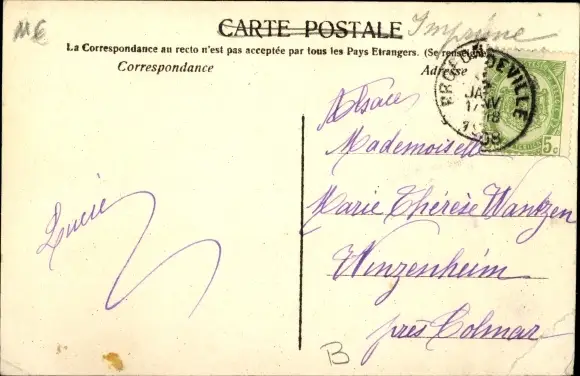 ME
CARTE POSTALE
Imprimé
La Correspondance au recto n'est pas acceptée par tous les Pays Etrangers. (Se renseigne
Correspondance
Adresse
DEVILLE
JANV
5c
Alsace
Mademoiselle
Marie Thérèse Wantzen
Winzenheim
près Colmar
Lucie
B